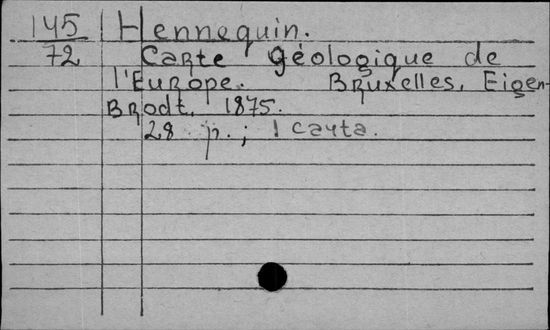 145 Hennequin.
72 Carte géologique de
l'Europe. Bruxelles, Eigen-
Brodt, 1875.
28 p.; 1 carta.